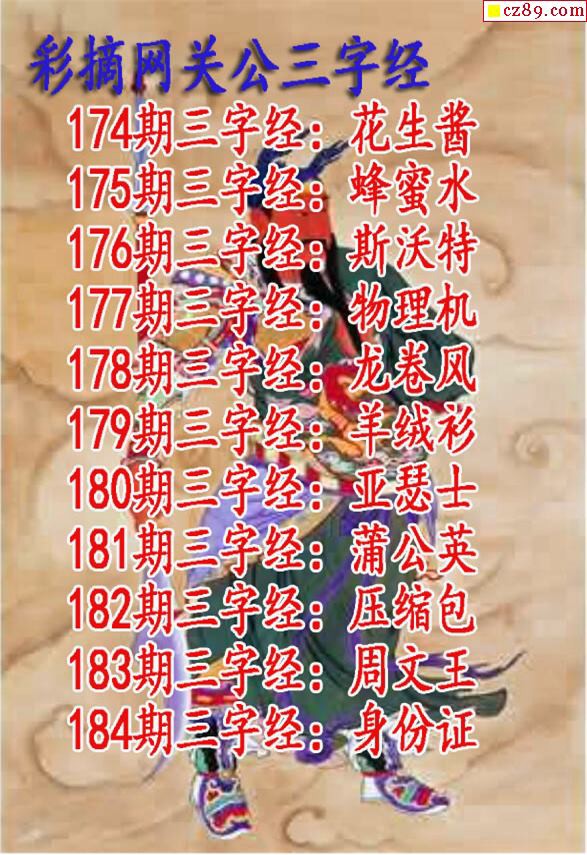 cz89.com
彩摘网关公三字经
174期三字经：花生酱
175期三字经：蜂蜜水
176期三字经：斯沃特
177期三字经：物理机
178期三字经：龙卷风
179期三字经：羊绒衫
180期三字经：亚瑟士
181期三字经：蒲公英
182期三字经：压缩包
183期三字经：周文王
184期三字经：身份证